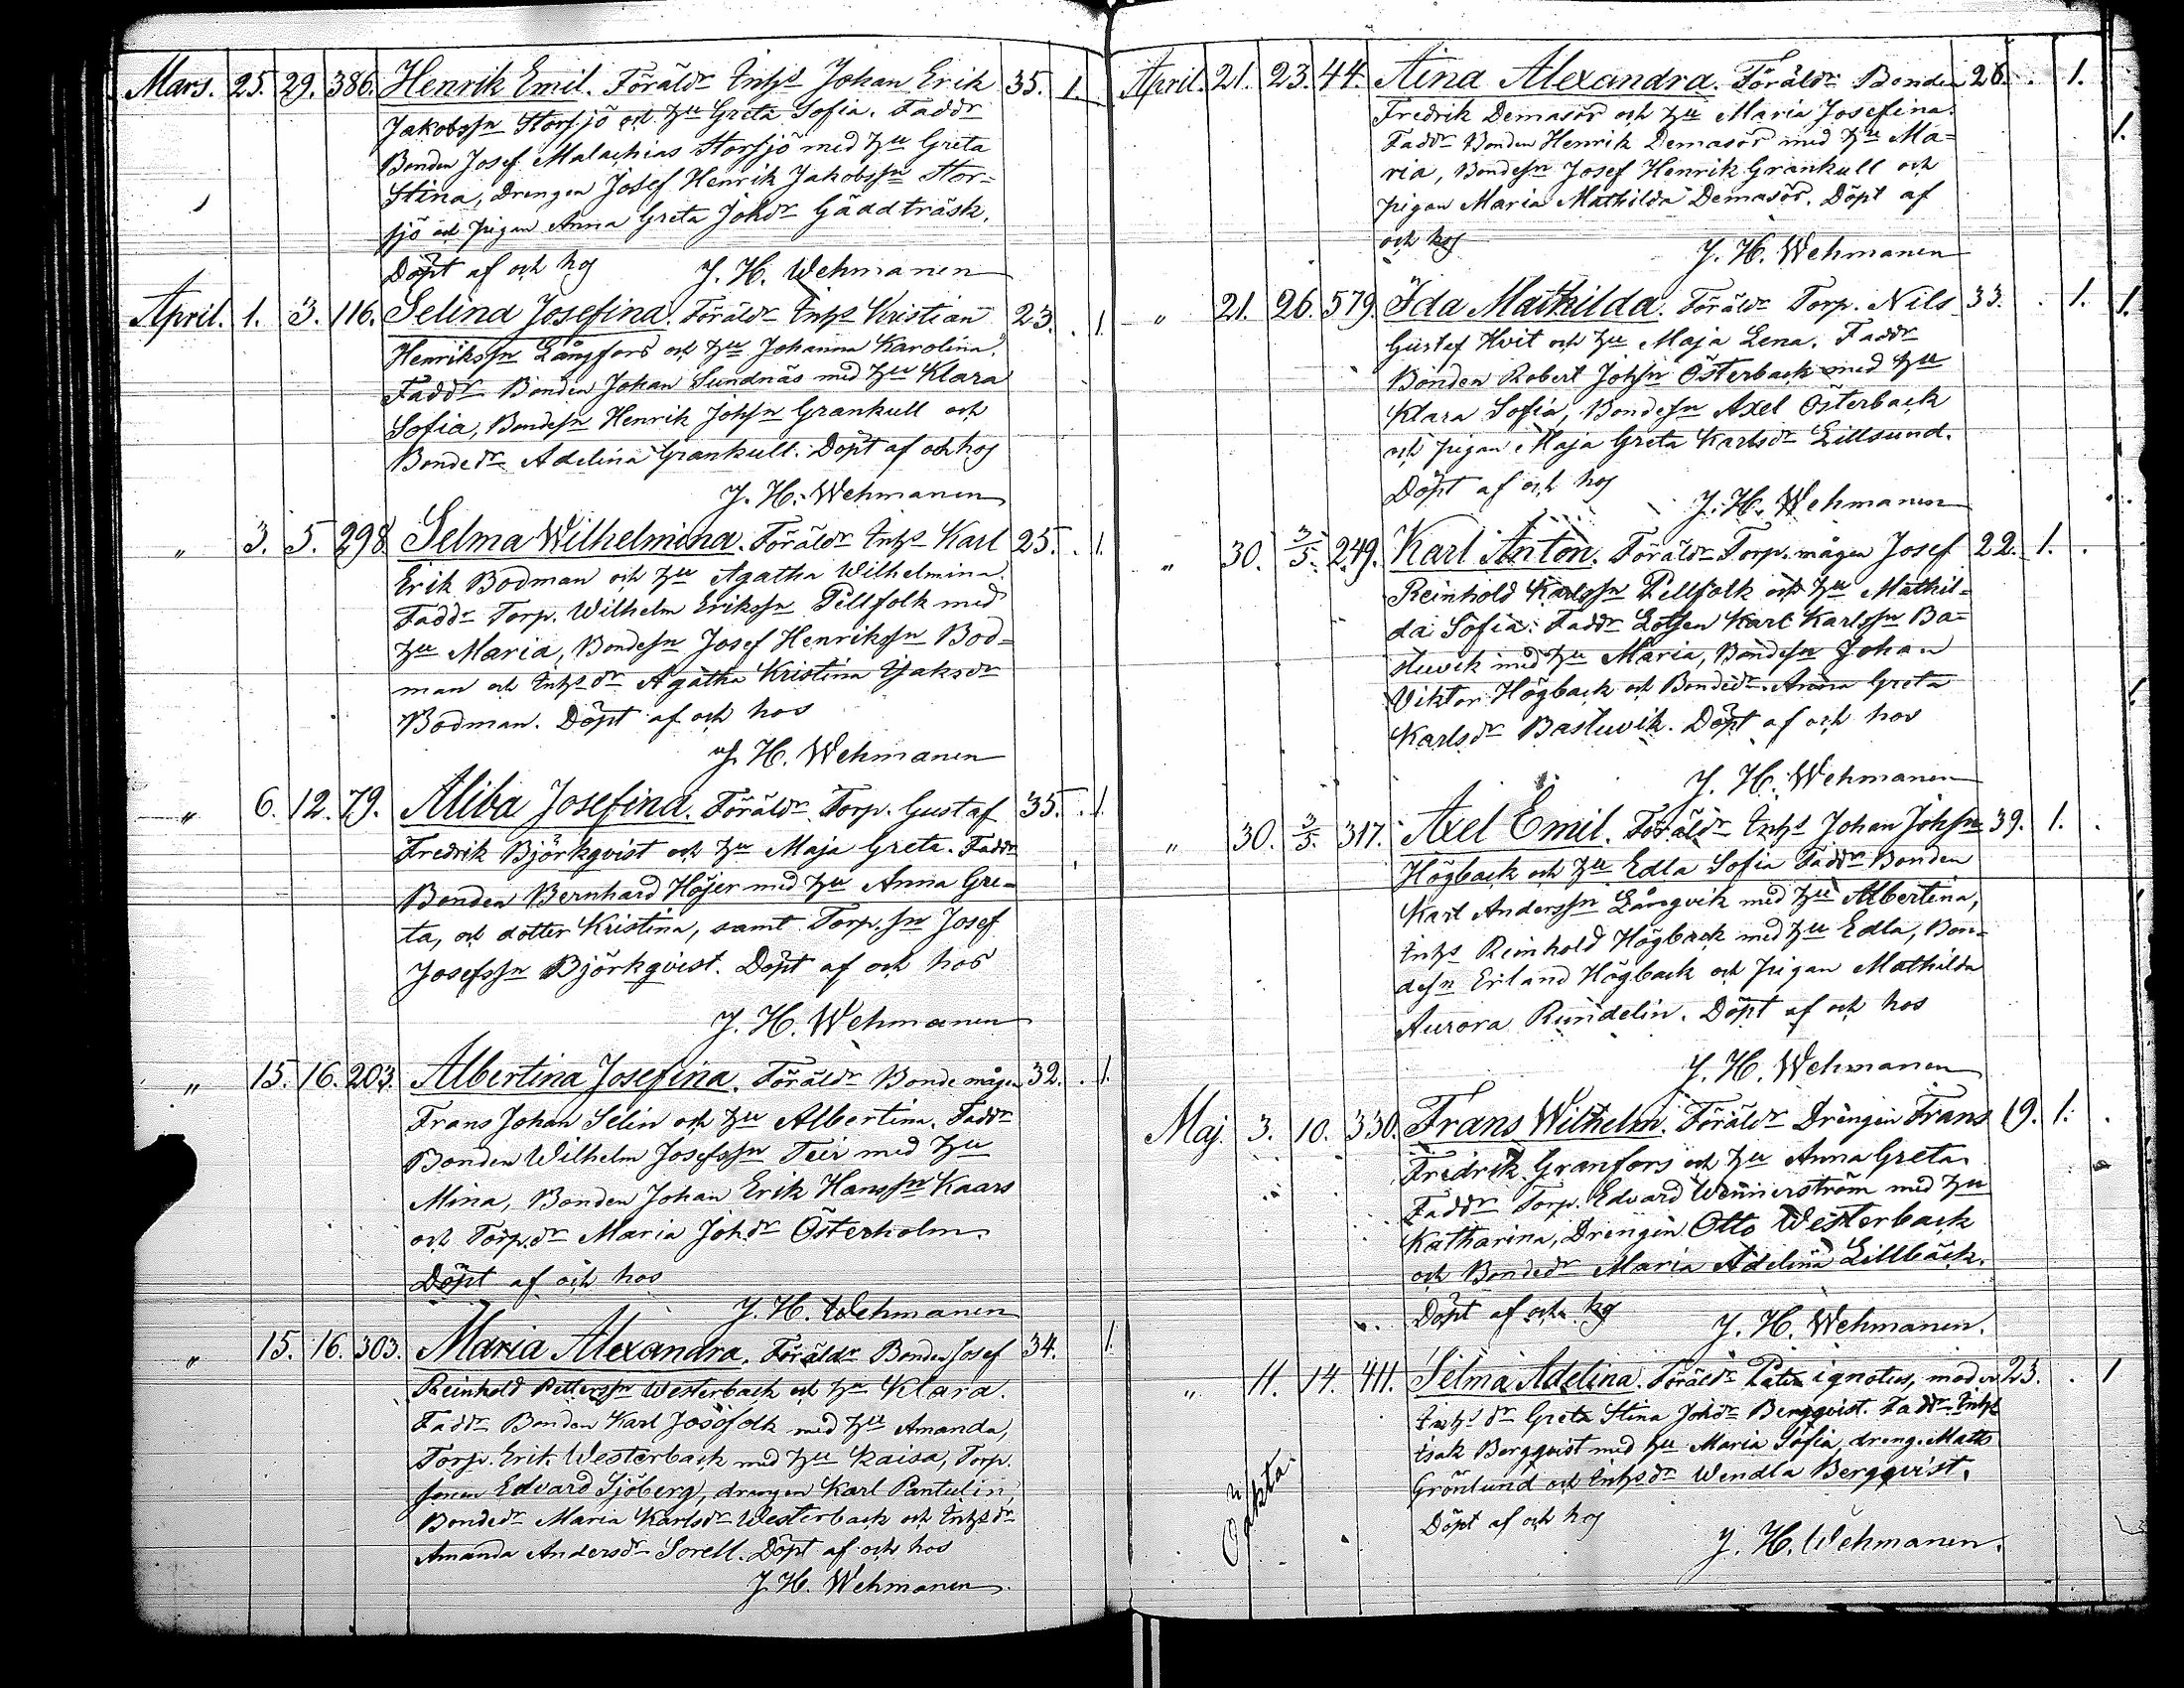 Mars. 25. 29. 386. Henrik Emil. Föräldr Inhs Johan Erik 35. 1.
Jakobssn Storsjö och hu Greta Sofia. Faddr
Bonden Josef Malachias Storsjö med hu Greta
Stina, Drengen Josef Henrik Jakobssn Stor-
sjö och pigan Anna Greta Johdr Gäddträsk.
Döpt af och hos J. H. Wehmanen
April. 1. 3. 116. Selina Josefina. Föräldr Inhs Kristian 23. . 1.
Henrikssn Långfors och hu Johanna Karolina.
Faddr Bonden Johan Sundnäs med hu Klara
Sofia, Bondesn Henrik Johsn Grankull och
Bondedr Adelina Grankull. Döpt af och hos
J. H. Wehmanen
" 3. 5. 298 Selma Wilhelmina. Föräldr Inhs Karl 25. . 1.
Erik Bodman och hu Agatha Wilhelmina.
Faddr Torp. Wilhelm Erikssn Pellfolk med
hu Maria, Bondesn Josef Henrikssn Bod-
man och Inhsdr Agatha Kristina Isaksdr
Bodman. Döpt af och hos
J. H. Wehmanen
" 6. 12. 79. Aliba Josefina. Föräldr Torp. Gustaf 35. . 1.
Fredrik Björkqvist och hu Maja Greta. Faddr
Bonden Bernhard Höjer med hu Anna Gre-
ta, och dotter Kristina, samt Torp. sn Josef
Josefssn Björkqvist. Döpt af och hos
J. H. Wehmanen
" 15. 16. 203. Albertina Josefina. Föräldr Bondemågen 32. . 1.
Frans Johan Selin och hu Albertina. Faddr
Bonden Wilhelm Josefssn Teir med hu
Mina, Bonden Johan Erik Hanssn Kaars
och Torp.dr Maria Johdr Österholm.
Döpt af och hos
J. H. Wehmanen
" 15. 16. 303. Maria Alexandra. Föräldr Bonden Josef 34. 1.
Reinhold Petterssn Westerback och hu Klara.
Faddr Bonden Karl Jossfolk med hu Amanda,
Torp. Erik Westerback med hu Kaisa, Torp.
sonen Edvard Sjöberg, drengen Karl Pantulin,
Bondedr Maria Karlsdr Westerback och Inhsdr
Amanda Andersdr Sorell. Döpt af och hos
J. H. Wehmanen
April. 21. 23. 44. Aina Alexandra. Föräldr Bonden 26. . 1.
Fredrik Demasör och hu Maria Josefina. 1.
Faddr Bonden Henrik Demasör med hu Ma-
ria, Bondesn Josef Henrik Grankull och
pigan Maria Mathilda Demasör. Döpt af
och hos J. H. Wehmanen
" 21. 26. 579. Ida Mathilda. Föräldr Torp. Nils 33. . 1. 1.
Gustef Hvit och hu Maja Lena. Faddr
Bonden Robert Johsn Österback med hu
Klara Sofia, Bondesn Axel Österback
och pigan Maja Greta Karlsdr Lillsund.
Döpt af och hos
J. H. Wehmanen
" 30. 3/5. 249. Karl Anton. Föräldr Torp. mågen Josef 22. 1. .
Reinhold Karlssn Pellfolk och hu Mathil-
da Sofia. Faddr Lotsen Karl Karlssn Ba-
stuvik med hu Maria, Bondesn Johan
Viktor Högback och Bondedr Anna Greta 1.
Karlsdr Bastuvik. Döpt af och hos
J. H. Wehmanen
" 30. 3/5. 317. Axel Emil. Föräldr Inhs Johan Johsn 39. 1. .
Högback och hu Edla Sofia Faddr Bonden
Karl Anderssn Långvik med hu Albertina,
Inhs Reinhold Högback med hu Edla, Bon-
desn Erland Högback och pigan Mathilda
Aurora Rundelin. Döpt af och hos
J. H. Wehmanen
Maj. 3. 10. 330. Frans Wilhelm. Föräldr Drengen Frans 19. 1. .
Fredrik Granfors och hu Anna Greta
Faddr Torp. Edvard Wennerström med hu
Katharina, Drengen Otto Westerback
och Bondedr Maria Adelina Lillbäck.
Döpt af och hos J. H. Wehmanen.
" 11. 14. 411. Selma Adelina. Föräldr Pater ignotus, moder 23. . 1
Inhsdr Greta Stina Johdr Bergqvist. Faddr Inhs
Isak Bergqvist med hu Maria Sofia, dreng. Matts
Grönlund och Inhsdr Wendla Bergqvist.
Döpt af och hos
J. H. Wehmanen.
Oäkta.